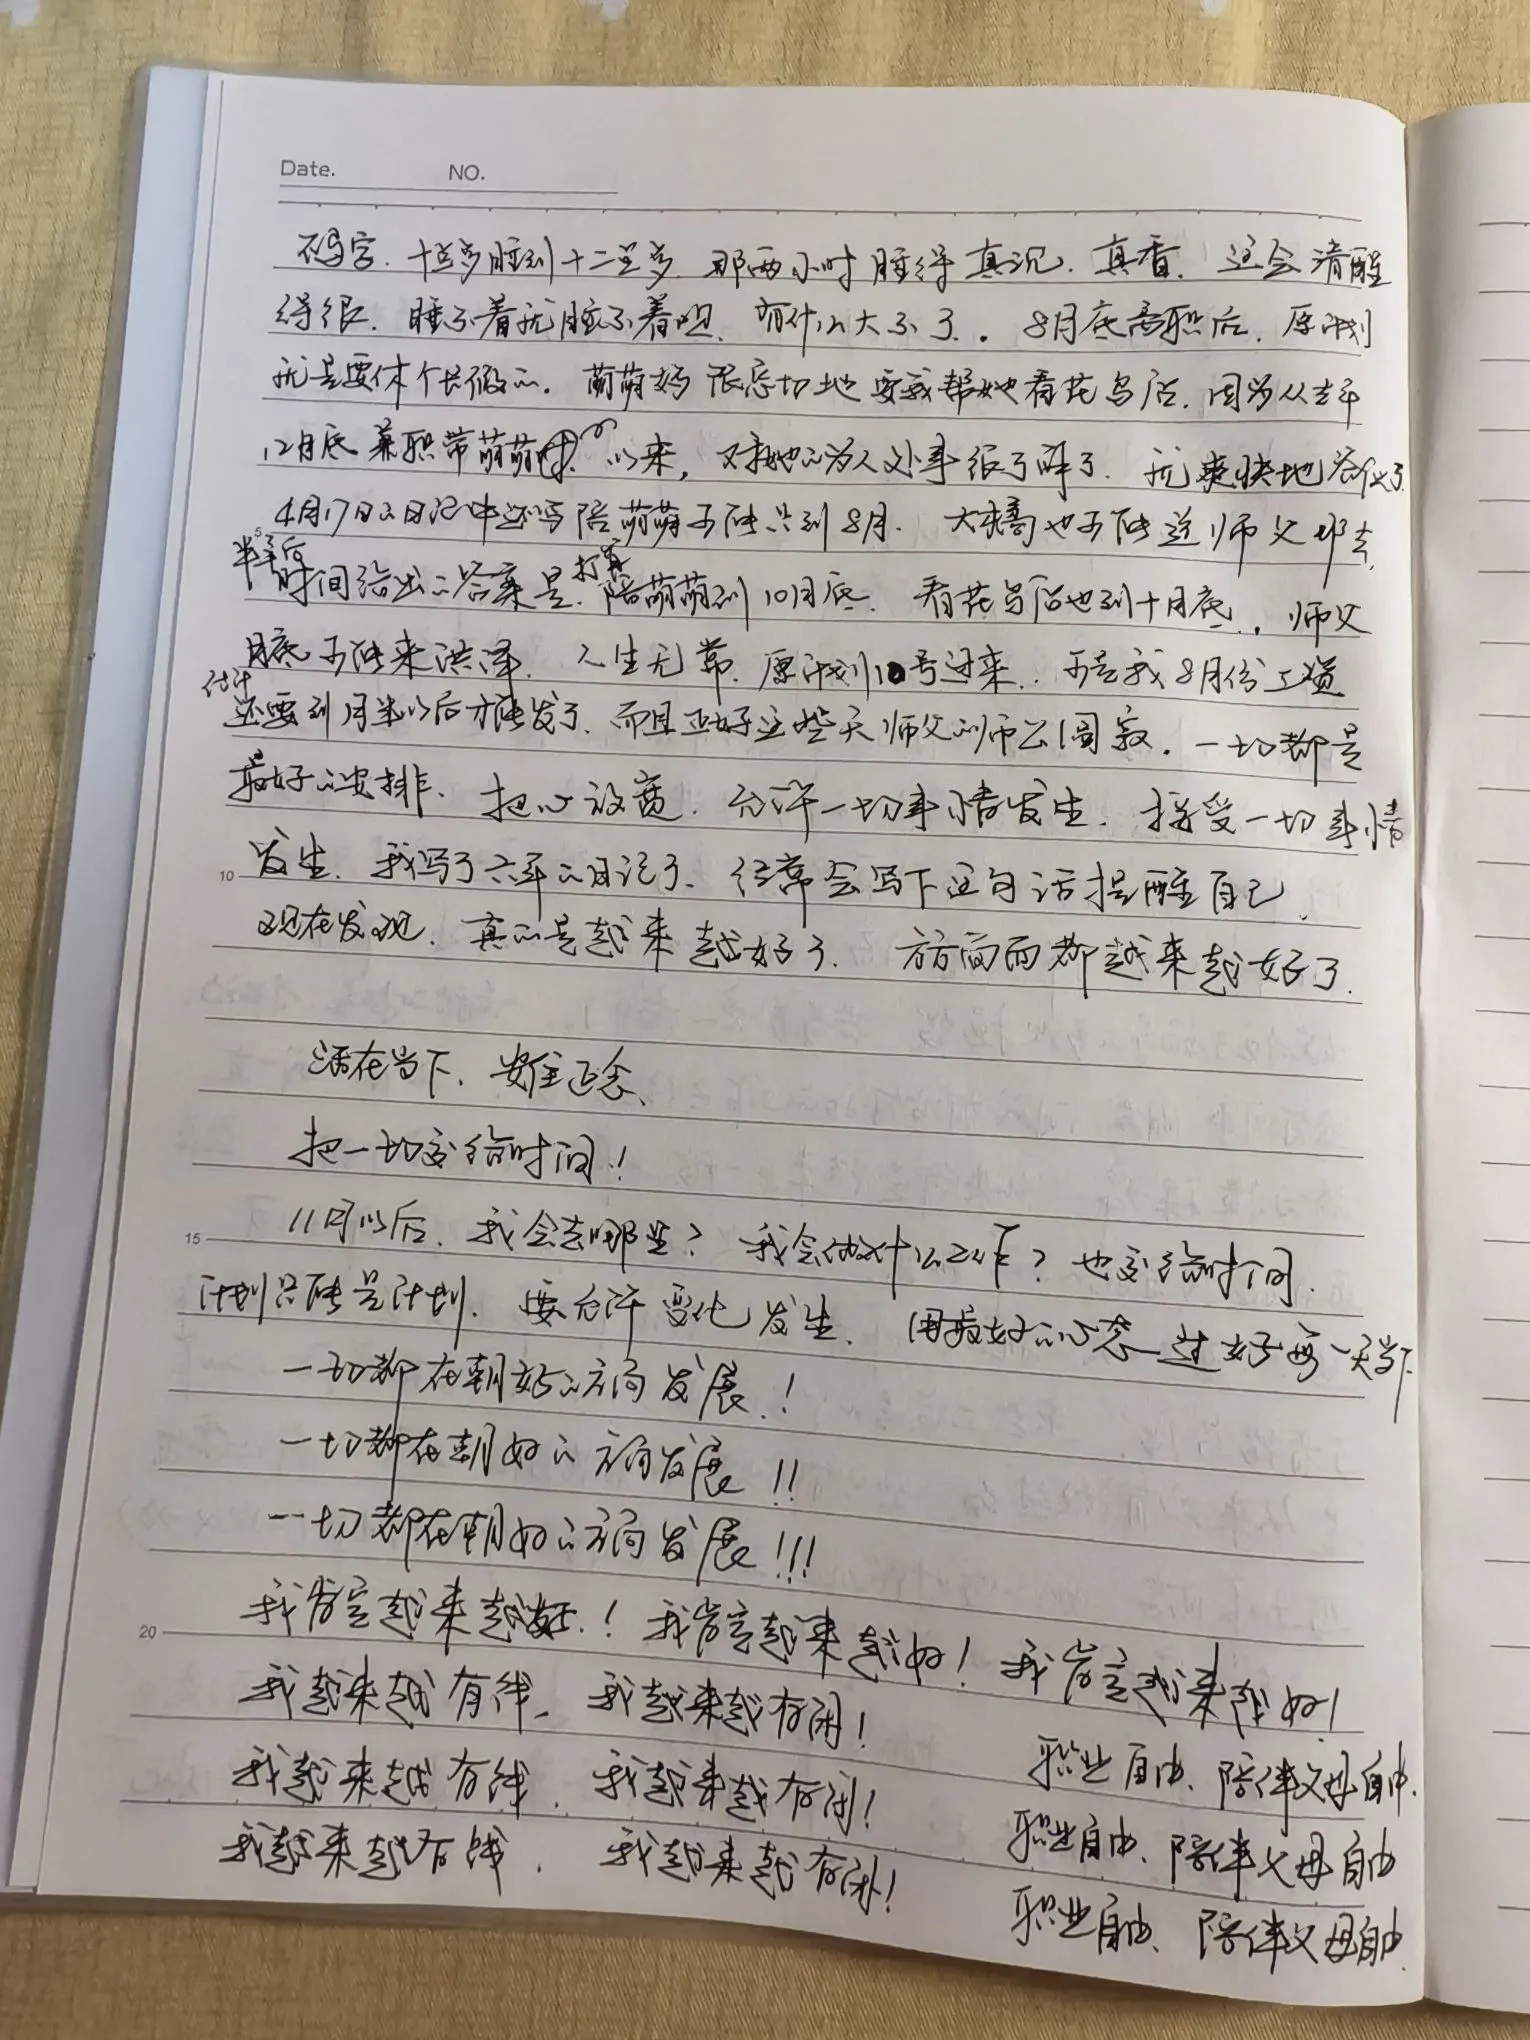 Date. NO.
码字. 十点多睡到十二点多. 那两小时睡得真沉. 真香. 这会清醒
得很. 睡不着就睡不着呗. 有什么大不了. 8月底离职后. 原计划
就是要休个长假的. 萌萌妈很恳切地要我帮她看花鸟店. 因为从去年
12月底兼职带萌萌 以来, 对她的为人处事很了解了. 就爽快地答应了.
4月17日的日记中还写陪萌萌可能只到8月. 大橘也可能送师父那去.
5
半年后
时间给出的答案是. 打算陪萌萌到10月底. 看花鸟店也到十月底. 师父
月底可能来洪泽. 人生无常. 原计划10号过来. 可是我8月份工资
估计
还要到月半以后才能发了. 而且正好这些天师父的师公圆寂. 一切都是
最好的安排. 把心放宽. 允许一切事情发生. 接受一切事情
10 发生. 我写了六年的日记了. 经常会写下这句话提醒自己.
现在发现. 真的是越来越好了. 方方面面都越来越好了.
活在当下、安住正念、
把一切交给时间!
15 11月以后. 我会去哪里? 我会做什么工作? 也交给时间.
计划只能是计划. 要允许变化发生. 用最好的心态过好每一天当下.
一切都在朝好的方向发展!
一切都在朝好的方向发展!!
一切都在朝好的方向发展!!!
20 我肯定越来越好! 我肯定越来越好! 我肯定越来越好!
我越来越有钱、我越来越有闲! 职业自由、陪伴父母自由.
我越来越有钱. 我越来越有闲! 职业自由、陪伴父母自由
我越来越有钱. 我越来越有闲! 职业自由、陪伴父母自由.